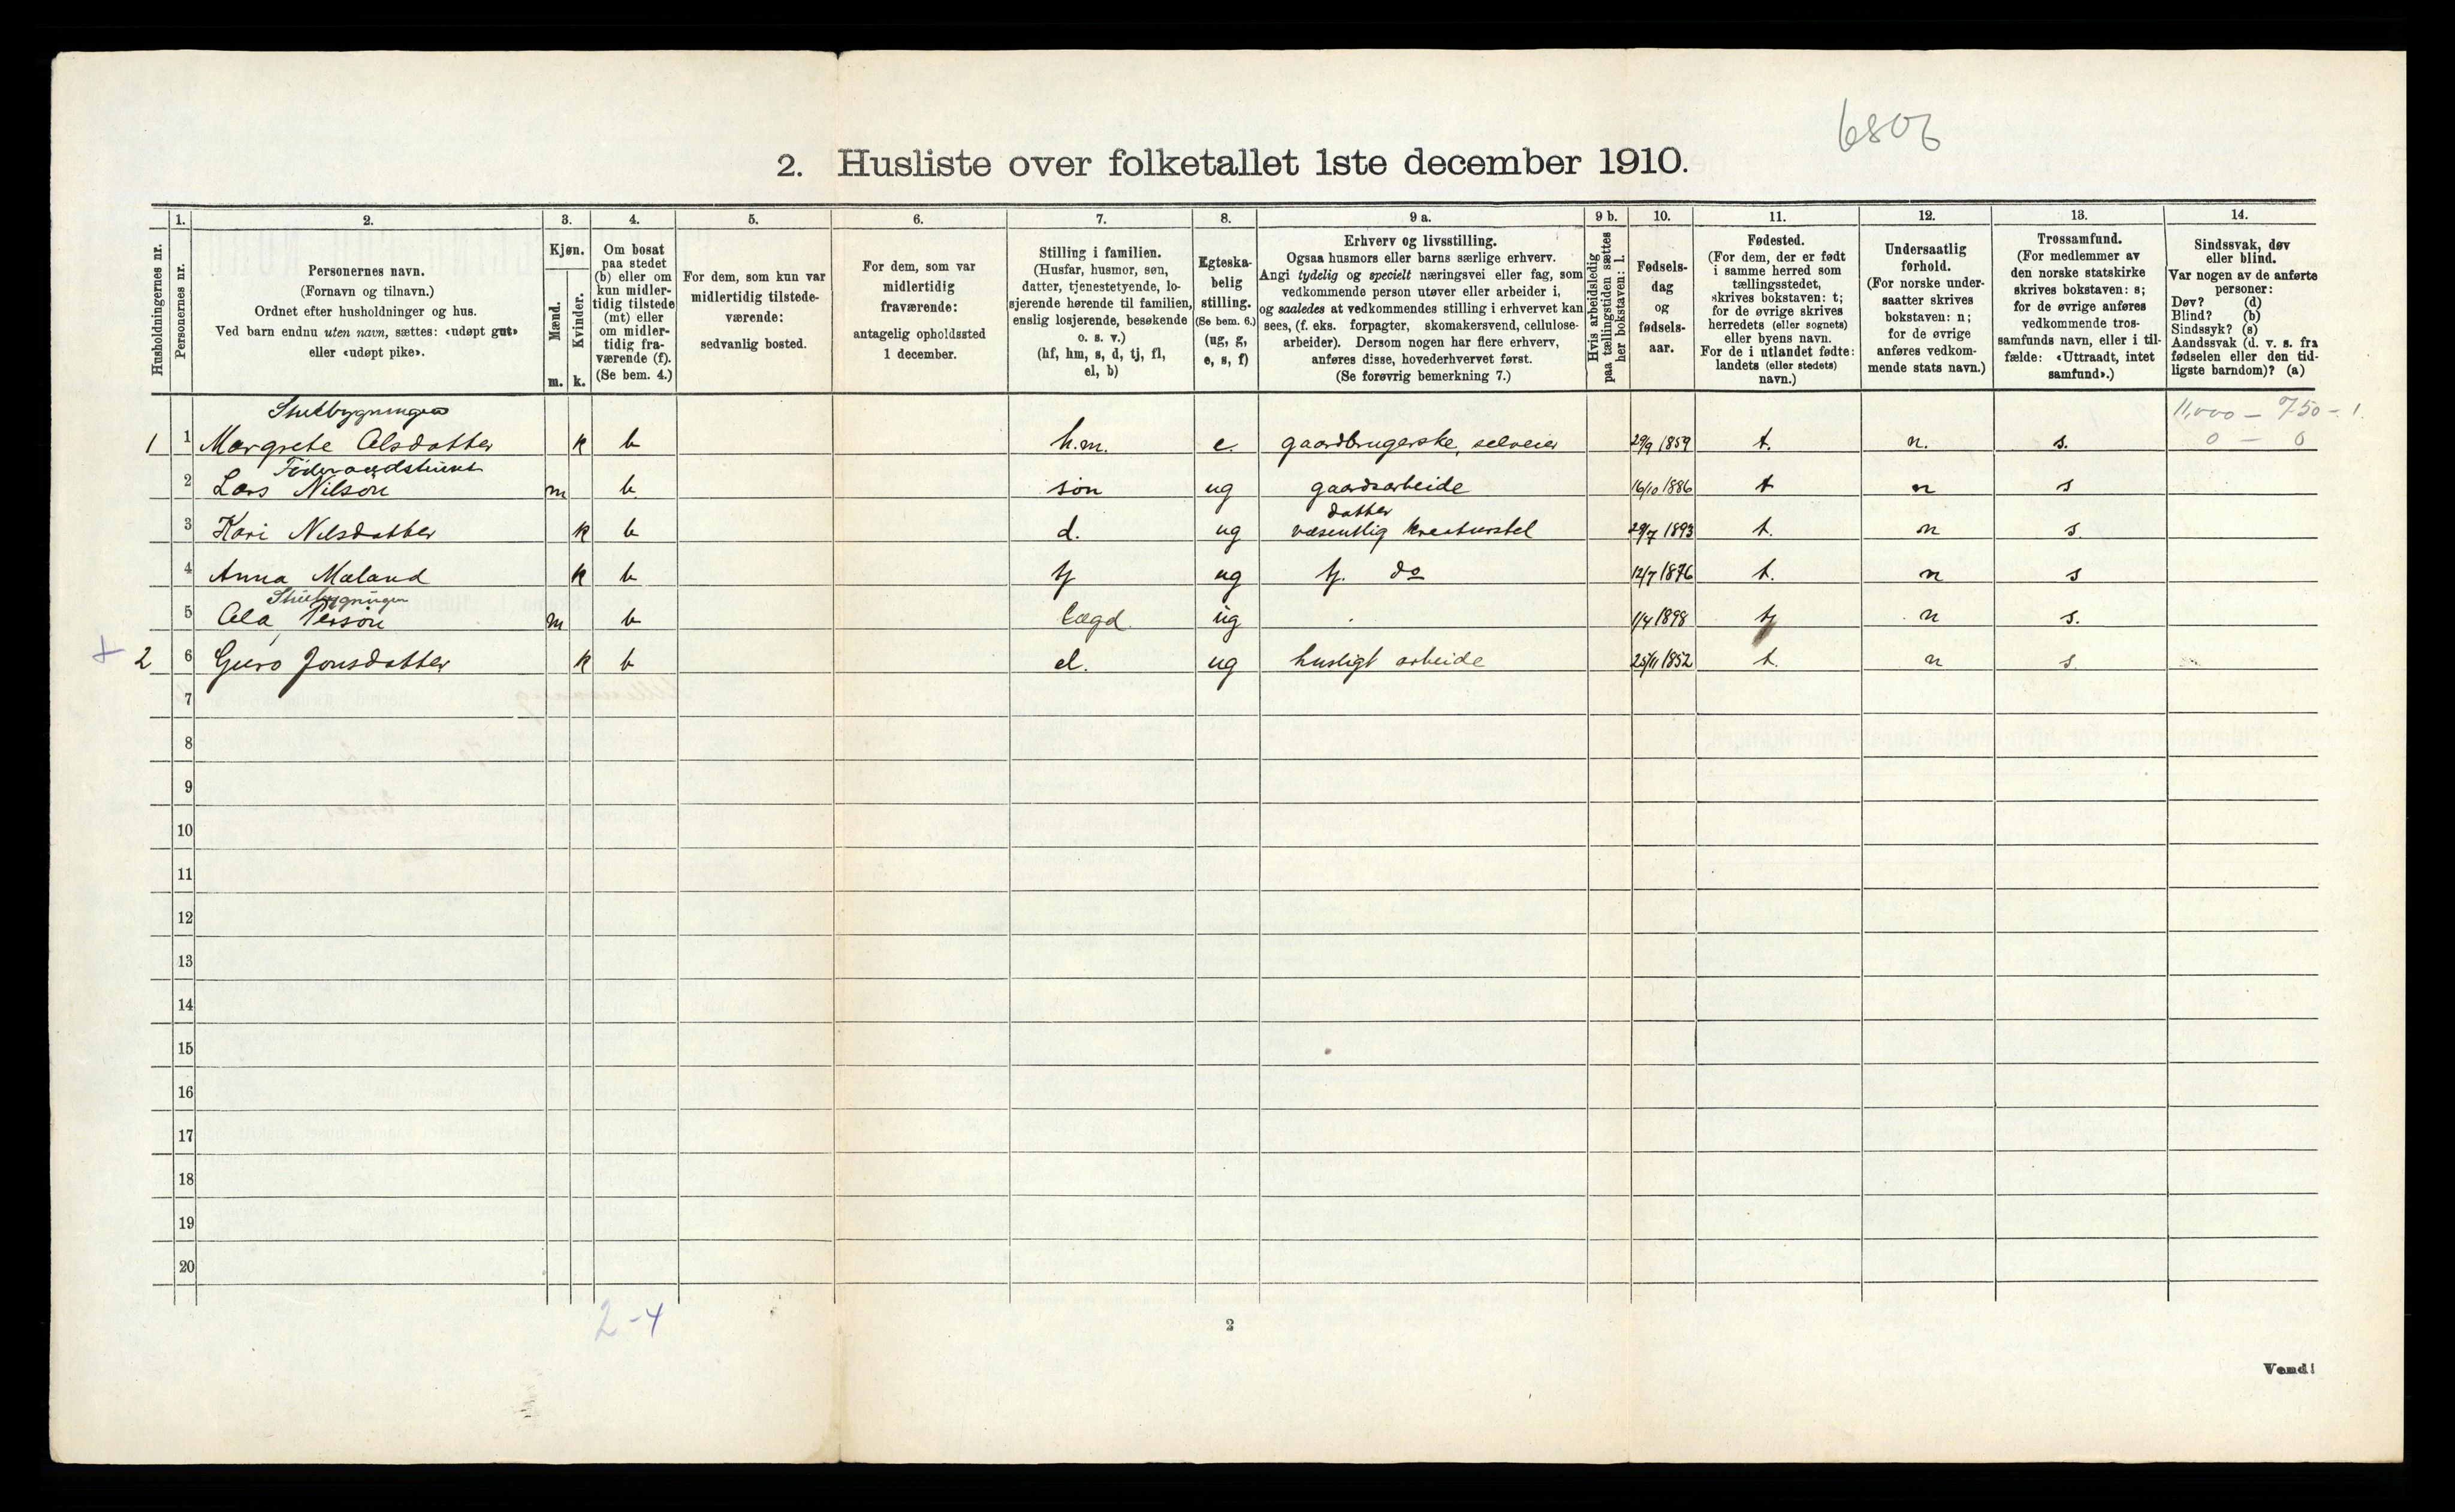 6806
2. Husliste over folketallet 1ste december 1910.
Husholdningernes nr.
1.
Personernes nr.
2.
Personernes navn.
(Fornavn og tilnavn.)
Ordnet efter husholdninger og hus.
Ved barn endnu uten navn, sættes: «udøpt gut»
eller «udøpt pike».
3.
Kjøn.
Mænd.
m.
Kvinder.
k.
4.
Om bosat
paa stedet
(b) eller om
kun midler-
tidig tilstede
(mt) eller
om midler-
tidig fra-
værende (f).
(Se bem. 4.)
5.
For dem, som kun var
midlertidig tilstede-
værende:
sedvanlig bosted.
6.
For dem, som var
midlertidig
fraværende:
antagelig opholdssted
1 december.
7.
Stilling i familien.
(Husfar, husmor, søn,
datter, tjenestetyende, lo-
sjerende hørende til familien,
enslig losjerende, besøkende
o. s. v.)
(hf, hm, s, d, tj, fl,
el, b)
8.
Egteska-
belig
stilling.
(Se bem. 6.)
(ug, g,
e, s, f)
9 a.
Erhverv og livsstilling.
Ogsaa husmors eller barns særlige erhverv.
Angi tydelig og specielt næringsvei eller fag, som
vedkommende person utøver eller arbeider i,
og saaledes at vedkommendes stilling i erhvervet kan
sees, (f. eks. forpagter, skomakersvend, cellulose-
arbeider). Dersom nogen har flere erhverv,
anføres disse, hovederhvervet først.
(Se forøvrig bemerkning 7.)
9 b.
Hvis arbeidsledig
paa tællingstiden sættes
her bokstaven: l.
10.
Fødsels-
dag
og
fødsels-
aar.
11.
Fødested.
(For dem, der er født
i samme herred som
tællingsstedet,
skrives bokstaven: t;
for de øvrige skrives
herredets (eller sognets)
eller byens navn.
For de i utlandet fødte:
landets (eller stedets)
navn.)
12.
Undersaatlig
forhold.
(For norske under-
saatter skrives
bokstaven: n;
for de øvrige
anføres vedkom-
mende stats navn.)
13.
Trossamfund.
(For medlemmer av
den norske statskirke
skrives bokstaven: s;
for de øvrige anføres
vedkommende tros-
samfunds navn, eller i til-
fælde: «Uttraadt, intet
samfund».)
14.
Sindssvak, døv
eller blind.
Var nogen av de anførte
personer:
Døv? (d)
Blind? (b)
Sindssyk? (s)
Aandssvak (d. v. s. fra
fødselen eller den tid-
ligste barndom)? (a)
Stuebygningen 11,000 – 750 – 1.
1 1 Margrete Olsdatter k b h.m. e. gaardbrugerske, selveier 29/9 1859 t. n. s. 0 – 0
2 Lars Nilsön m b sön ug gaardsarbeide 16/10 1886 t n s
datter
3 Kari Nilsdatter k b d. ug væsentlig kreaturstel 29/7 1893 t. n s.
4 Anna Mæland k b tj ug tj. do 12/7 1876 t. n s
Stuebygningen
5 Ola Persön m b lægd ug 1/4 1898 n s.
+ 2 6 Guro Jonsdatter k b el. ug husligt arbeide 25/11 1852 t. n s.
7
8
9
10
11
12
13
14
15
16
17
18
19
20
2-4
2
Vend!